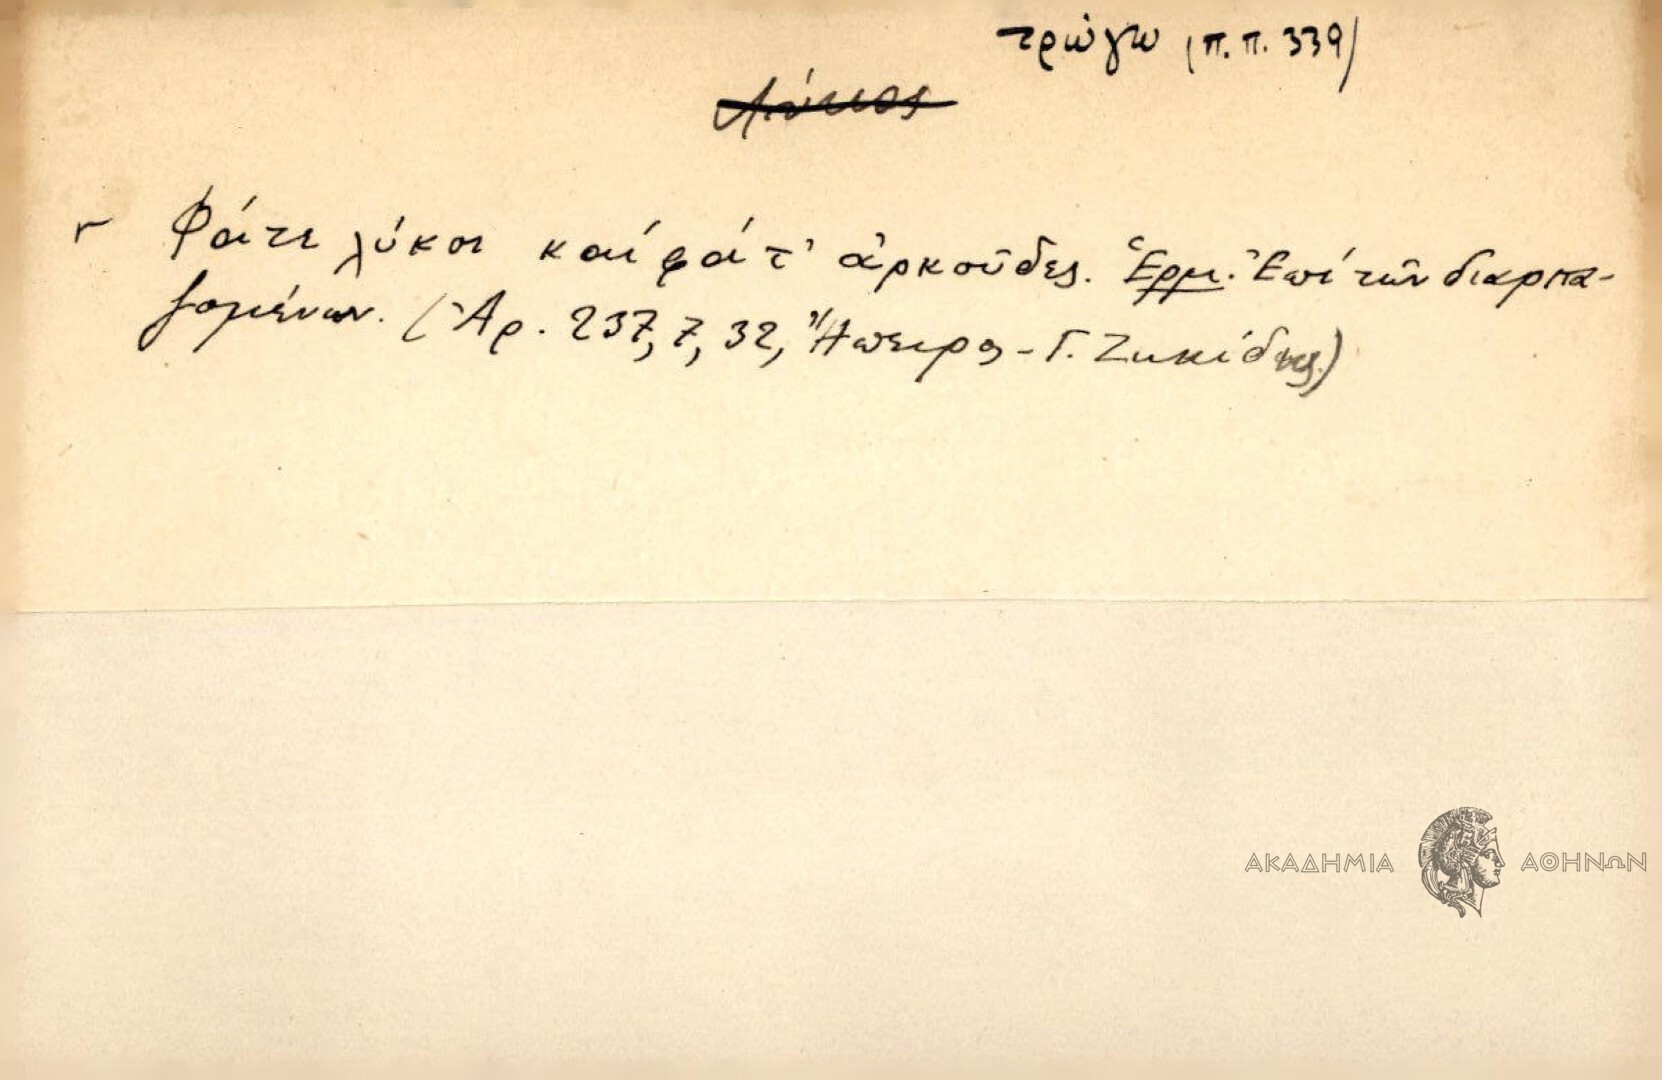 τρώγω (π.π. 339)
Λύκος
Φάτε λύκοι καί φάτ' ἀρκοῦδες. Ἑρμ. Ἐπί τῶν διαρπα-
ζομένων. (Ἀρ. 237, 7, 32, Ἤπειρος - Γ. Ζηκίδης.)
ΑΚΑΔΗΜΙΑ ΑΘΗΝΩΝ